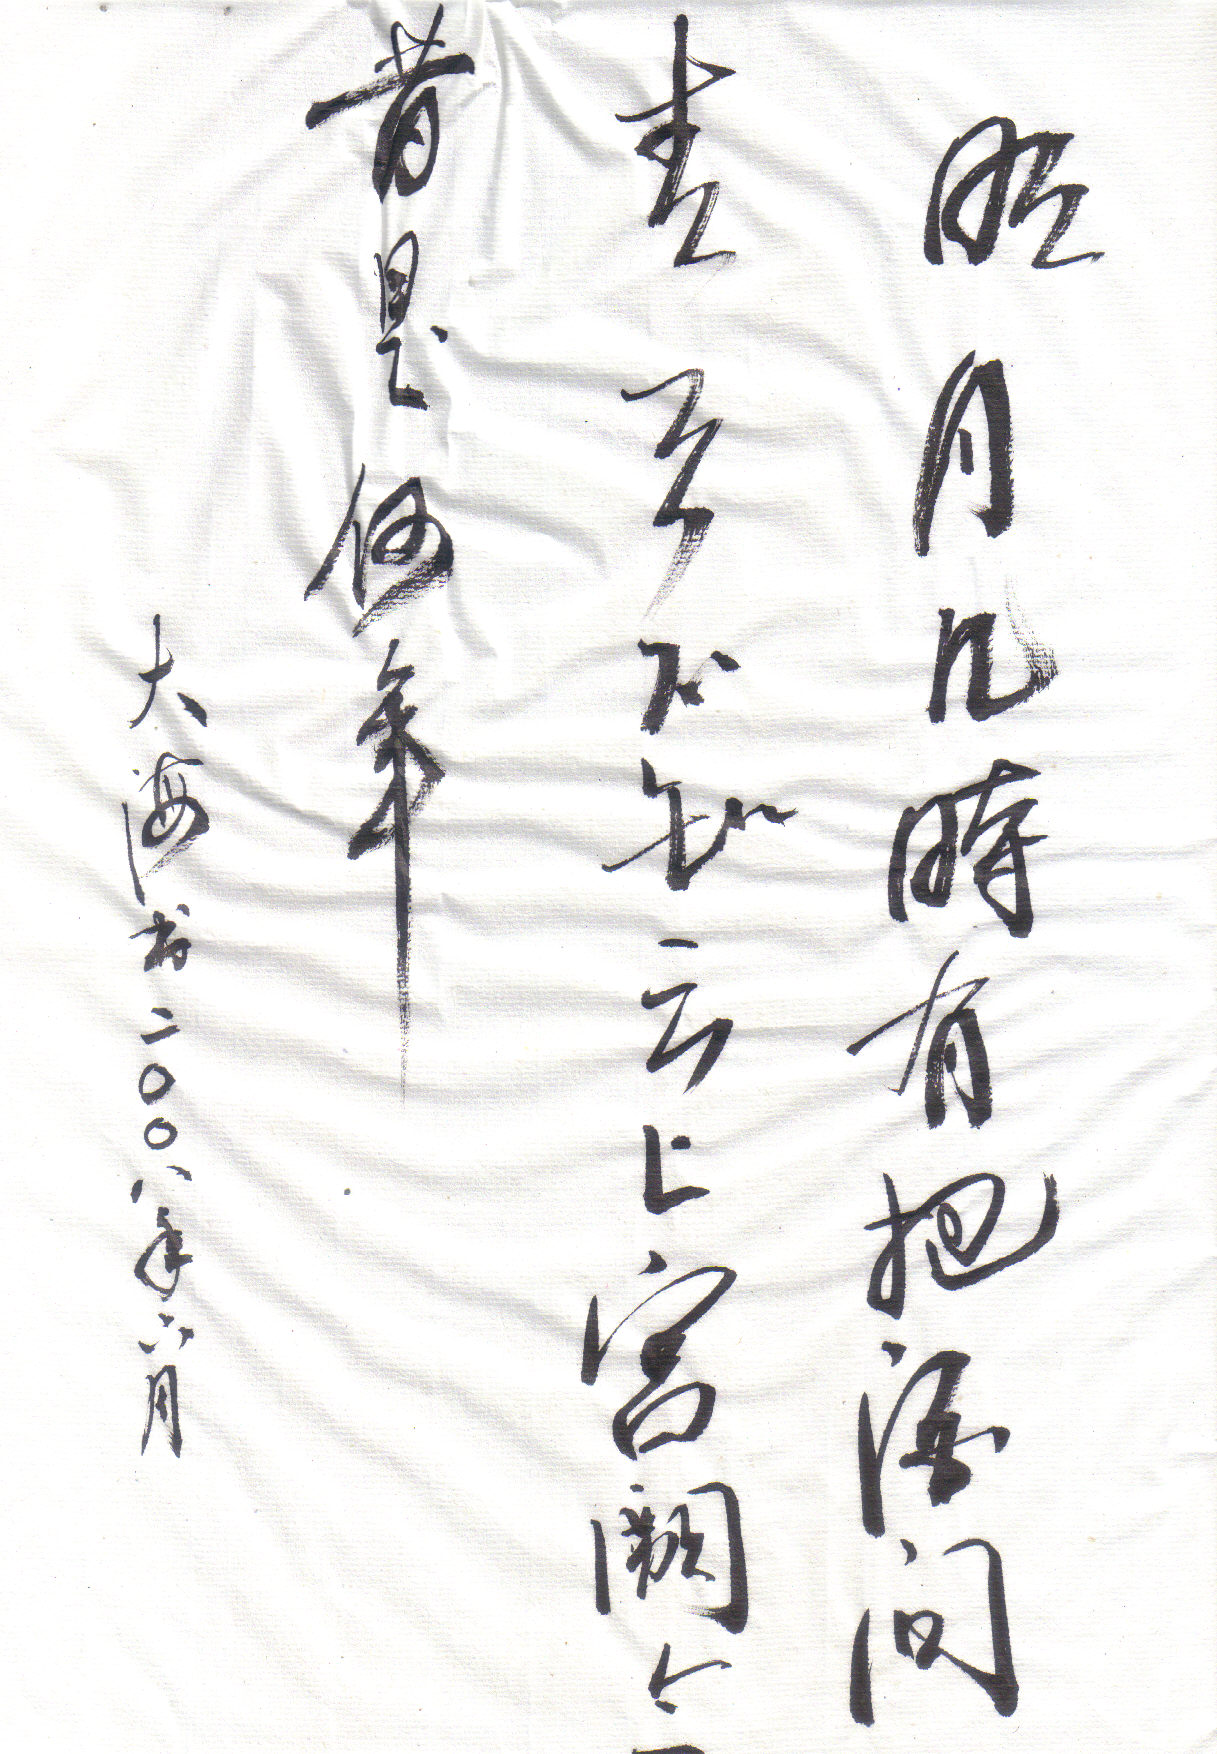 明月几時有把酒问
青天不知天上宫阙今
昔是何年
大海书二〇〇八年六月